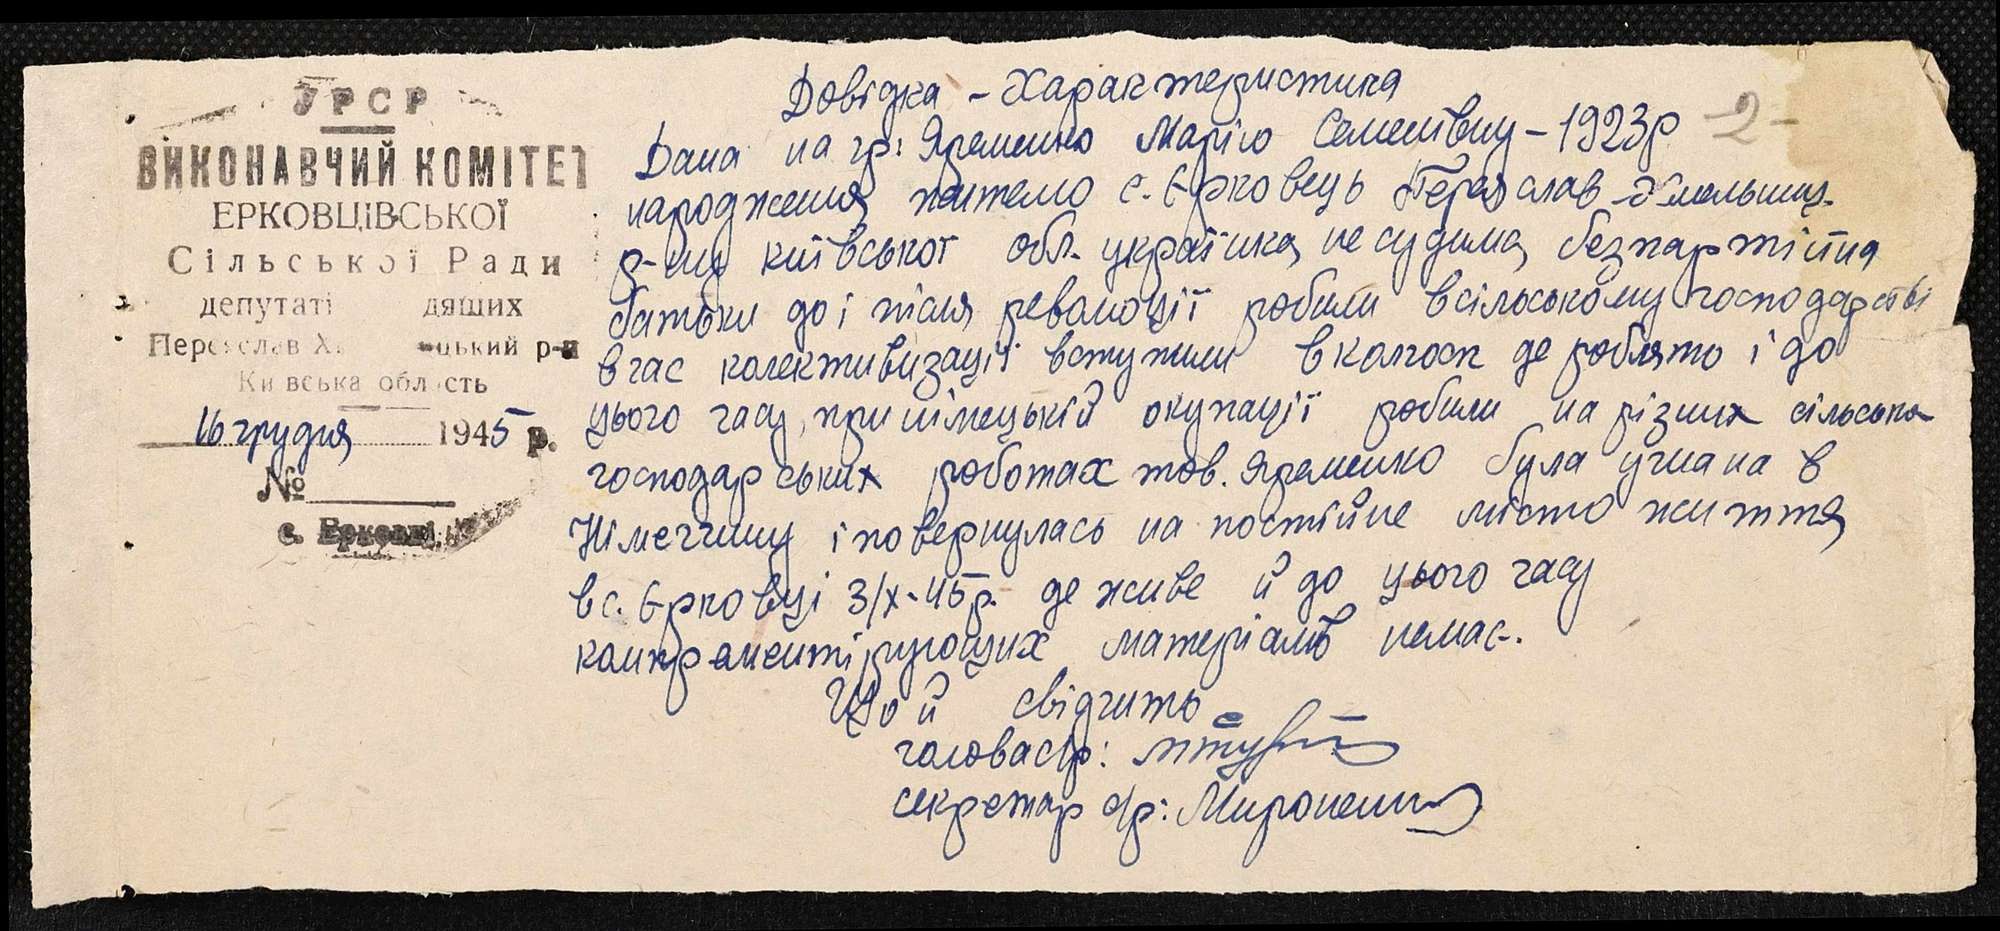 УРСР
ВИКОНАВЧИЙ КОМІТЕТ
ЕРКОВЦІВСЬКОЇ
Сільської Ради
депутаті дящих
Переяслав Х цький р-н
Київська область
16 грудня 1945 р.
№
с. Ерковці
Довідка - Характеристика
Дана на гр: Яременко Марію Семенівну - 1923р 2-
народження жителю с. Єрковець Переяслав-Хмельниц.
р-ну київської обл. українка, не судима, безпартійна
батьки до і після революції робили всільському господарстві
вчас колективизації вступили вколгосп де роблять і до
цього часу, при німецькій окупації робили на різних сільсько
господарських роботах тов. Яременко була угнана в
Німеччину і повернулась на постійне місто життя
в с. Єрковці 3/х-45р. де живе й до цього часу
компраментірующих матеріалів немає.
Що й свідчить
голова с/р:
секретар с/р: Мироненко